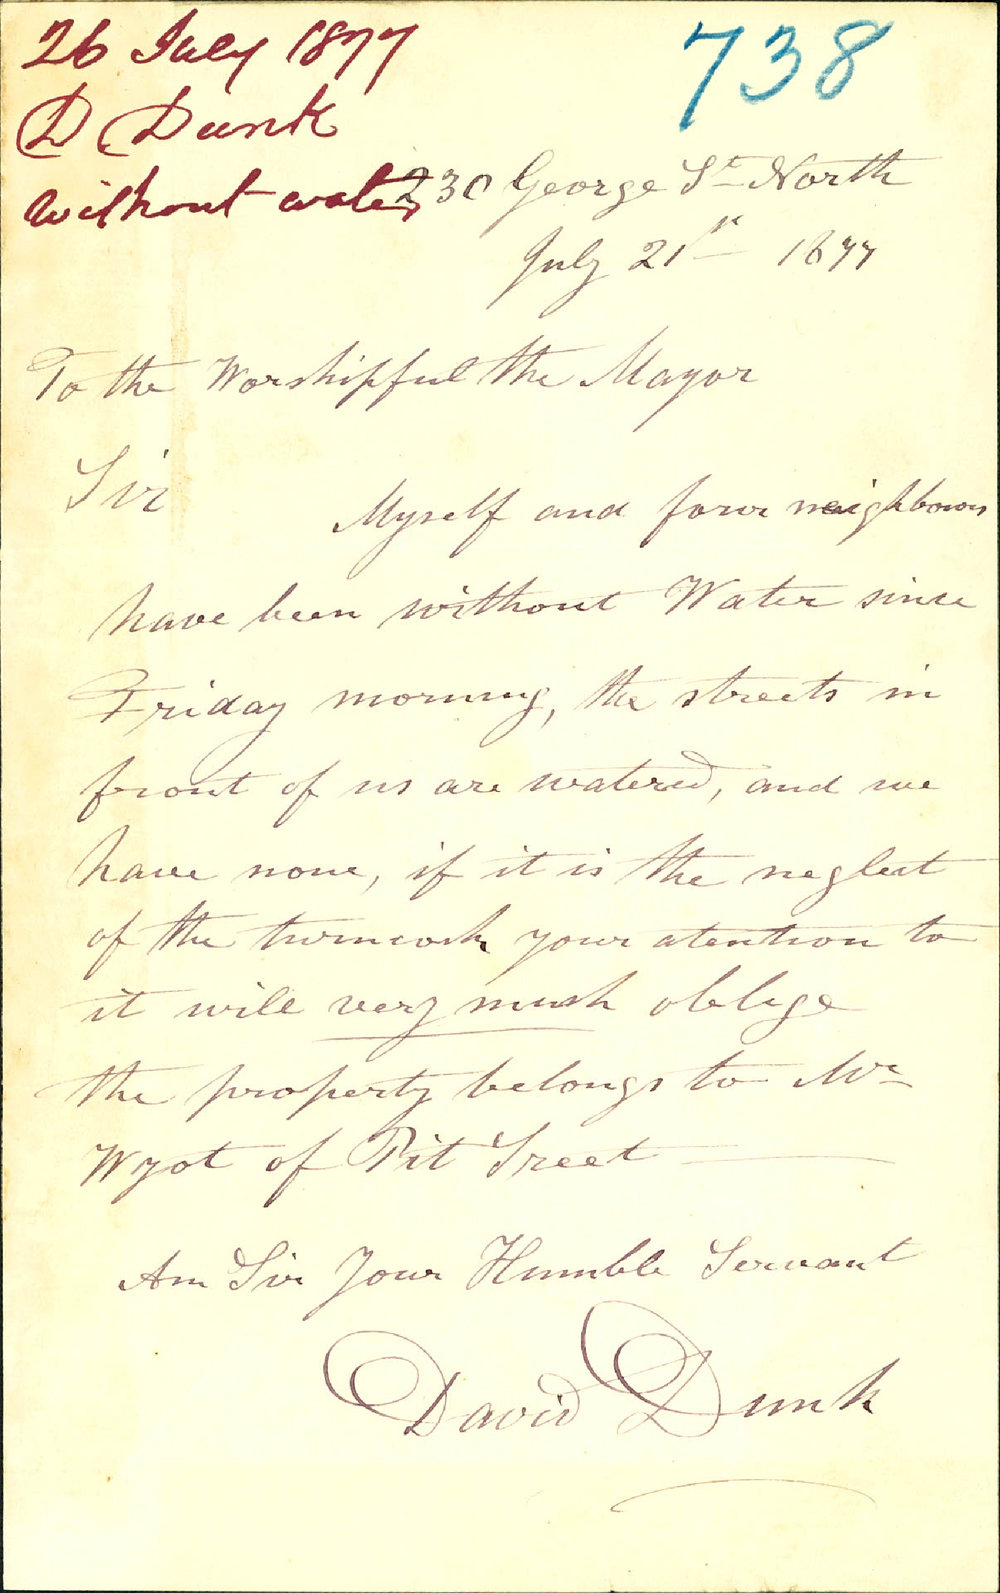 26 July 1877
738
D Dunk
without water
230 George St North
July 21st 1877
To the Worshipful the Mayor
Sir
Myself and four neighbours
have been without Water since
Friday morning, the streets in
front of us are watered, and we
have none, if it is the neglect
of the turncock your atention to
it will very much oblige
the property belongs to Mr
Wyot of Pit Sreet
Am Sir Your Humble Servant
David Dunk